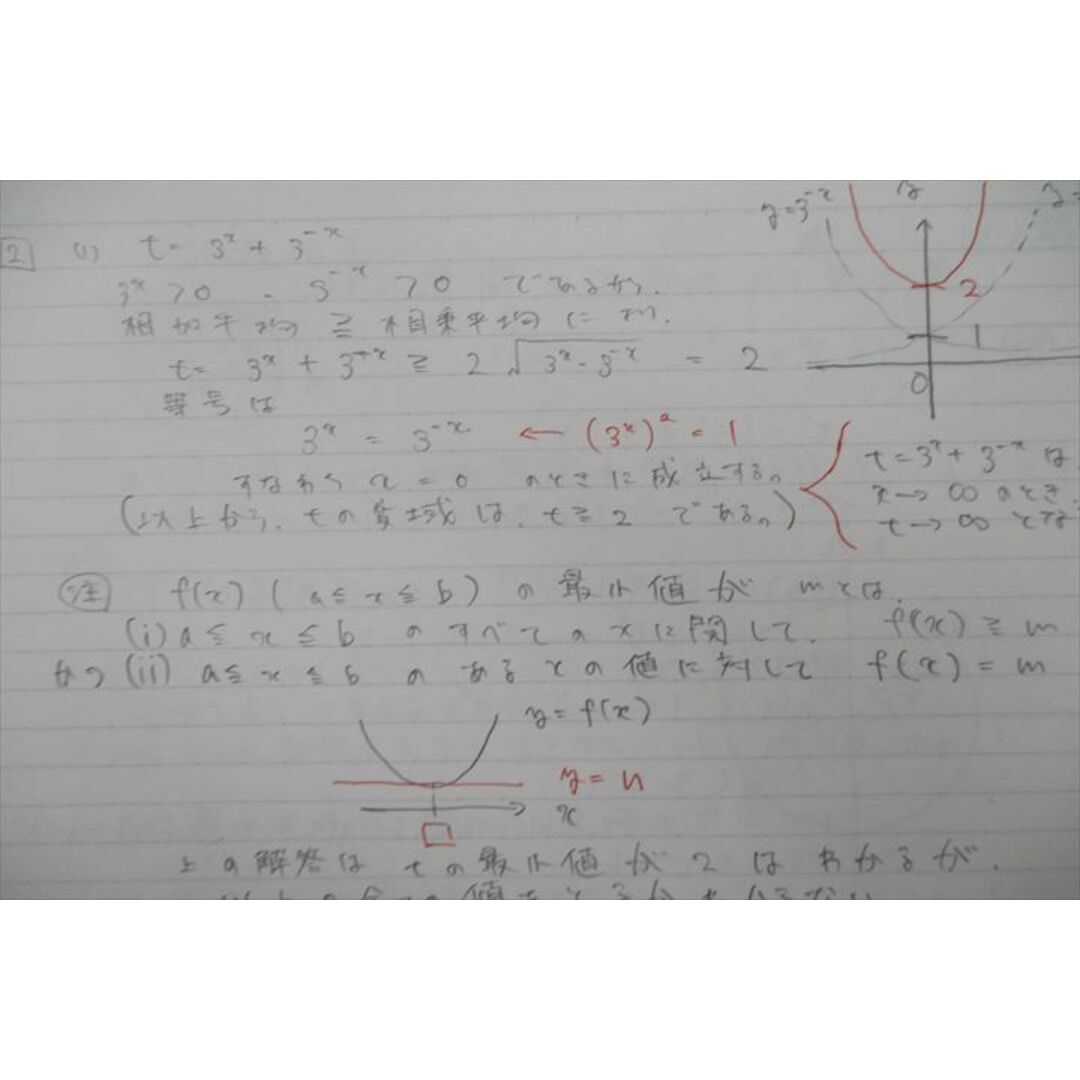 2 (1) t = 3^x + 3^-x
3^x > 0 . 3^-x > 0 であるから.
相加平均 ≧ 相乗平均 により.
t = 3^x + 3^-x ≧ 2√(3^x・3^-x) = 2
等号は
3^x = 3^-x ← (3^x)^2 = 1
すなわち x = 0 のときに成立する。
(以上から、tの変域は、t ≧ 2 である。)
y=3^-x
y
y=
2
1
0
t = 3^x + 3^-x は
x → ∞ のとき.
t → ∞ とな
注 f(x) ( a ≦ x ≦ b ) の最小値が mとは.
(i) a ≦ x ≦ b のすべてのxに関して. f(x) ≧ m
かつ (ii) a ≦ x ≦ b のあるxの値に対して f(x) = m
y = f(x)
y = n
x
上の解答は tの最小値が 2 は わかるが.